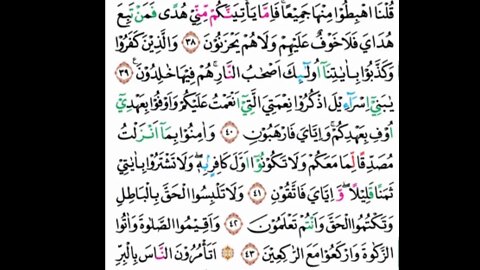 قُلْنَا اهْبِطُوْا مِنْهَا جَمِيْعًا ۚ فَاِمَّا يَأْتِيَنَّكُمْ مِّنِّيْ هُدًى فَمَنْ تَبِعَ
هُدَايَ فَلَا خَوْفٌ عَلَيْهِمْ وَلَا هُمْ يَحْزَنُوْنَ ﴿٣٨﴾ وَالَّذِيْنَ كَفَرُوْا
وَكَذَّبُوْا بِاٰيٰتِنَآ اُولٰۤىِٕكَ اَصْحٰبُ النَّارِ ۚ هُمْ فِيْهَا خٰلِدُوْنَ ﴿٣٩﴾
يٰبَنِيْٓ اِسْرَاۤءِيْلَ اذْكُرُوْا نِعْمَتِيَ الَّتِيْٓ اَنْعَمْتُ عَلَيْكُمْ وَاَوْفُوْا بِعَهْدِيْٓ
اُوْفِ بِعَهْدِكُمْ ۚ وَاِيَّايَ فَارْهَبُوْنِ ﴿٤٠﴾ وَاٰمِنُوْا بِمَآ اَنْزَلْتُ
مُصَدِّقًا لِّمَا مَعَكُمْ وَلَا تَكُوْنُوْٓا اَوَّلَ كَافِرٍۢ بِهٖ ۖ وَلَا تَشْتَرُوْا بِاٰيٰتِيْ
ثَمَنًا قَلِيْلًا ۖ وَّاِيَّايَ فَاتَّقُوْنِ ﴿٤١﴾ وَلَا تَلْبِسُوا الْحَقَّ بِالْبَاطِلِ
وَتَكْتُمُوا الْحَقَّ وَاَنْتُمْ تَعْلَمُوْنَ ﴿٤٢﴾ وَاَقِيْمُوا الصَّلٰوةَ وَاٰتُوا
الزَّكٰوةَ وَارْكَعُوْا مَعَ الرّٰكِعِيْنَ ﴿٤٣﴾ اَتَأْمُرُوْنَ النَّاسَ بِالْبِرِّ